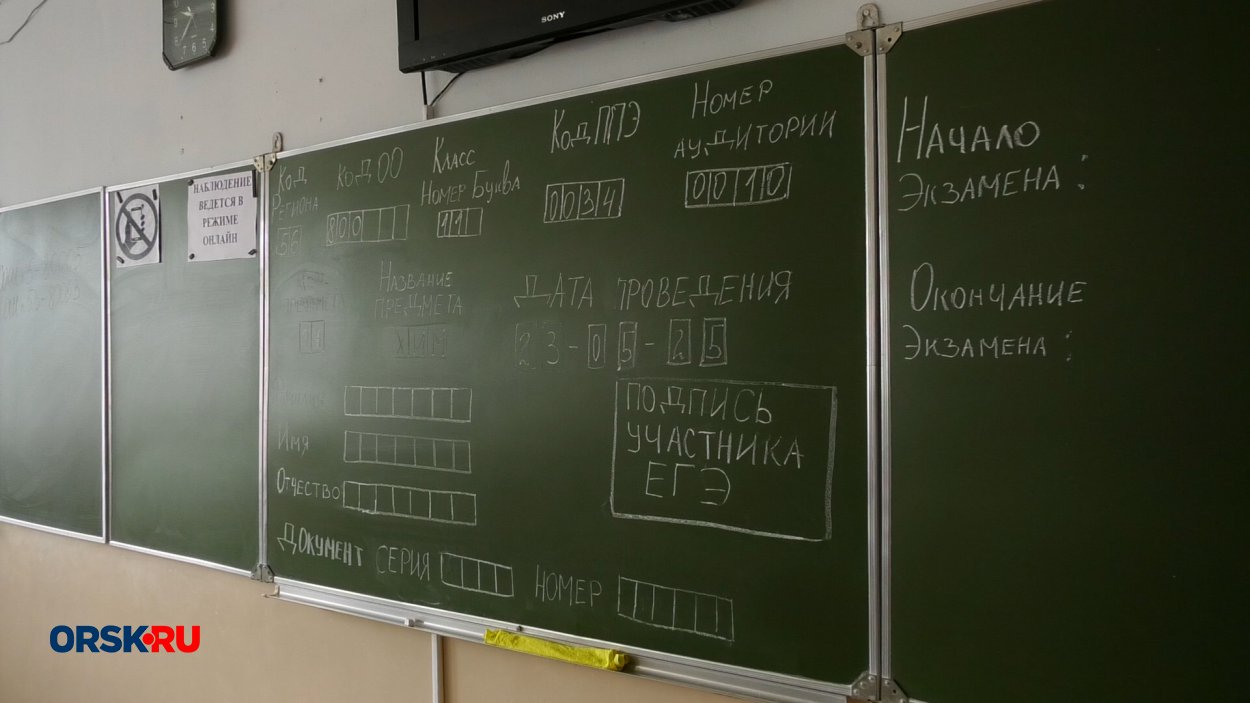 SONY
НАБЛЮДЕНИЕ
ВЕДЕТСЯ В
РЕЖИМЕ
ОНЛАЙН
Код
Региона
56
Код ОО
800
Класс
Номер Буква
11
Код ППЭ
0034
Номер
аудитории
0010
Название
предмета
ХИМ
Дата проведения
23-05-25
Имя
Отчество
Подпись
участника
ЕГЭ
Документ серия
номер
Начало
экзамена :
Окончание
экзамена :
ORSK.RU